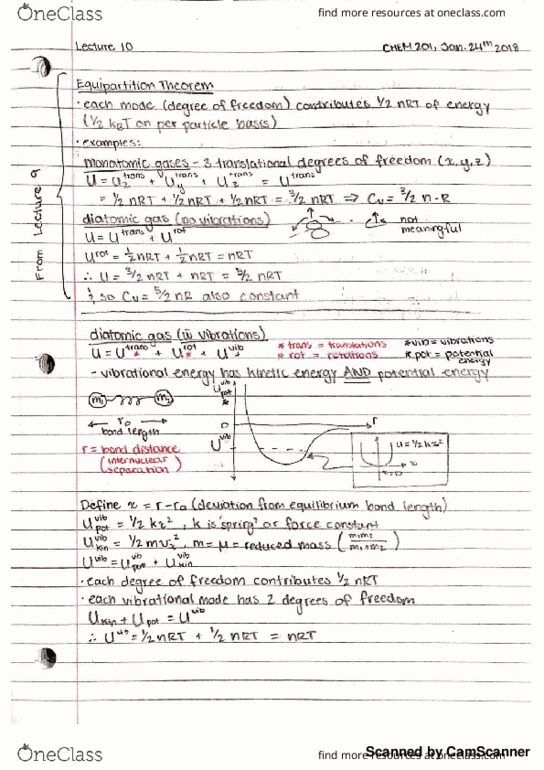 OneClass
find more resources at oneclass.com
Lecture 10
CHEM 201, Jan. 24th 2018
Equipartition Theorem
· each mode (degree of freedom) contributes 1/2 nRT of energy
(1/2 kBT on per particle basis)
· examples:
monatomic gases - 3 translational degrees of freedom (x,y,z)
U = Ux^trans + Uy^trans + Uz^trans = U^trans
= 1/2 nRT + 1/2 nRT + 1/2 nRT = 3/2 nRT ⇒ Cv = 3/2 n·R
From Lecture 9
diatomic gas (no vibrations)
not meaningful
U = U^trans + U^rot
U^rot = 1/2 nRT + 1/2 nRT = nRT
∴ U = 3/2 nRT + nRT = 5/2 nRT
so Cv = 5/2 nR also constant
diatomic gas (w̄ vibrations)
* trans = translations
* rot = rotations
* vib = vibrations
* pot = potential energy
U = U^trans + U^rot + U^vib
- vibrational energy has kinetic energy AND potential energy
m1
m2
r0
bond length
r = bond distance
(internuclear separation)
U^vib pot
0
U^vib
r
U = 1/2 kx²
x
x=0
Define x = r - r0 (deviation from equilibrium bond length)
U^vib pot = 1/2 kx², k is 'spring' or force constant
U^vib kin = 1/2 mvx², m = μ = reduced mass (m1m2/m1+m2)
U^vib = U^vib pot + U^vib kin
· each degree of freedom contributes 1/2 nRT
· each vibrational mode has 2 degrees of freedom
Ukin + Upot = U^vib
∴ U^vib = 1/2 nRT + 1/2 nRT = nRT
OneClass
find more resources at oneclass.com
Scanned by CamScanner